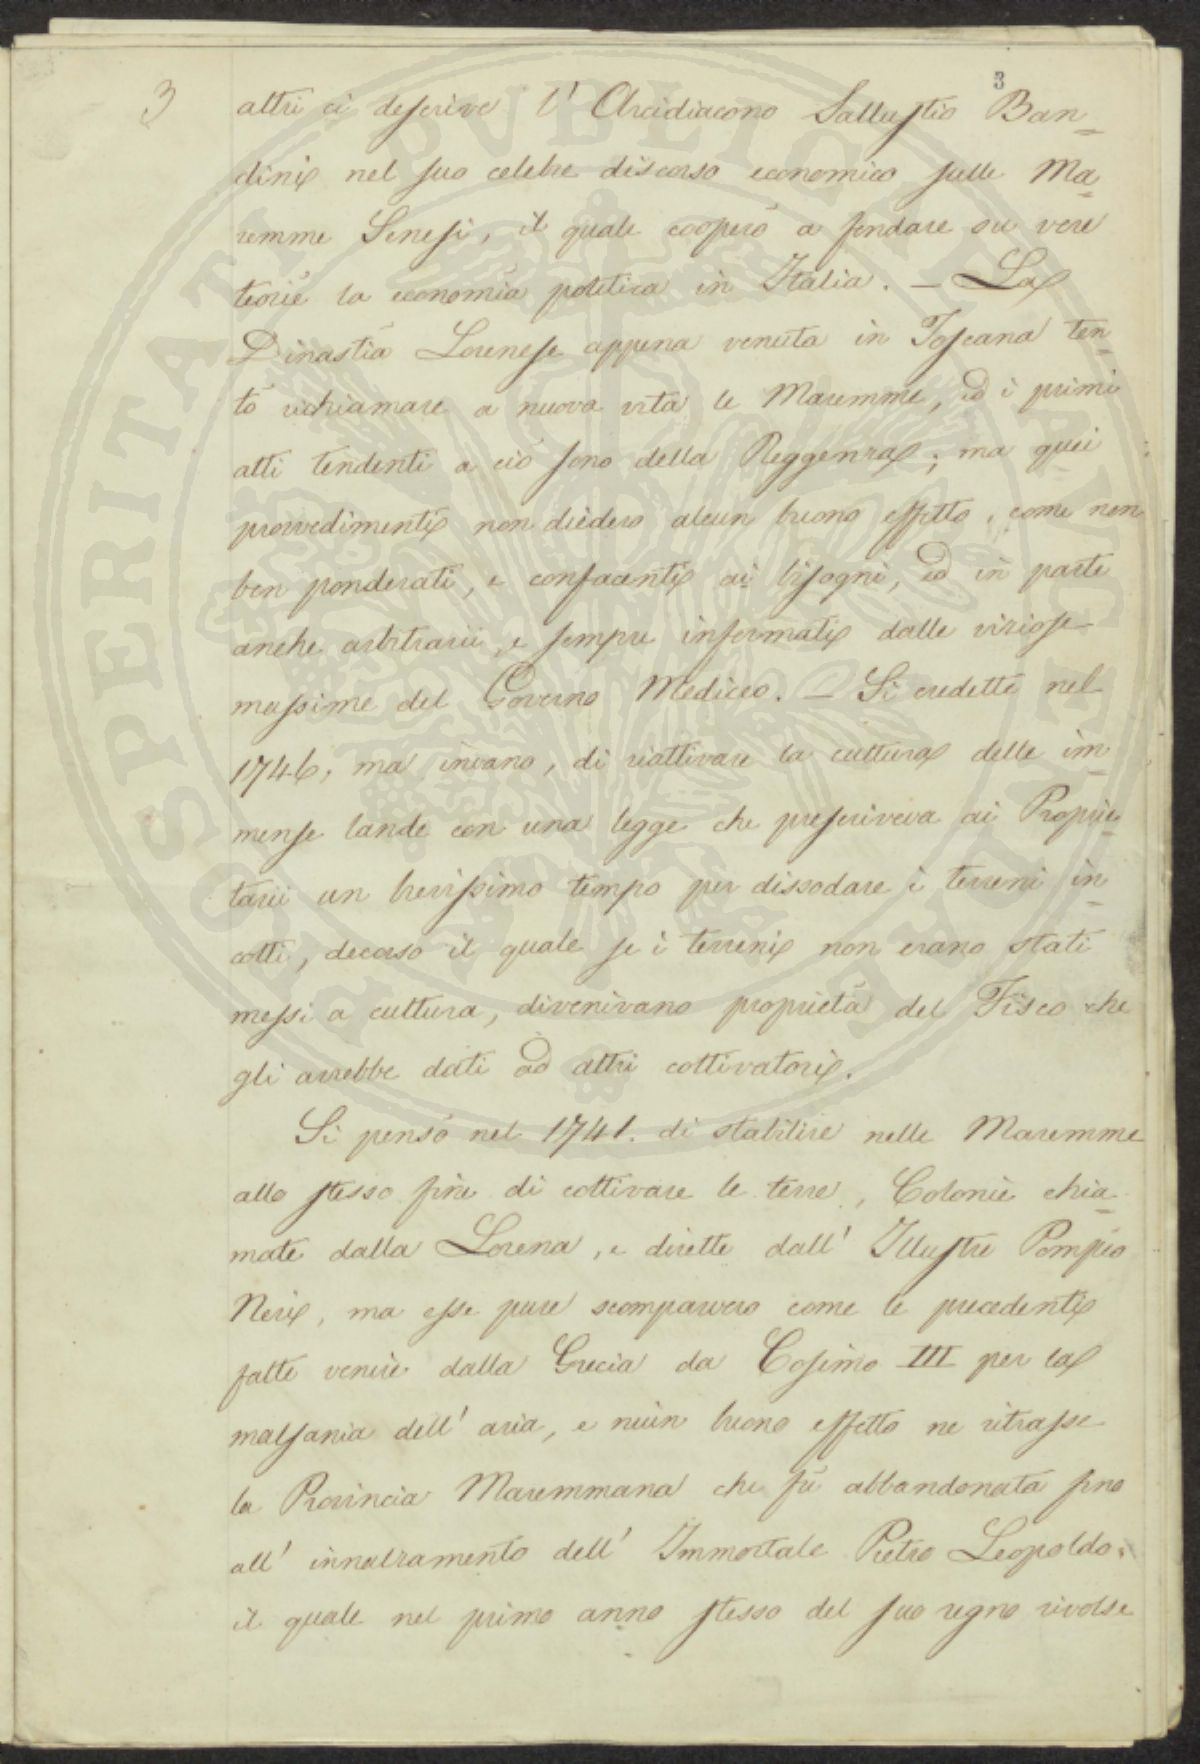 3
3
altri ci descrive l' Arcidiacono Sallustio Ban=
dini nel suo celebre discorso economico sulle Ma=
remme Senesi, il quale cooperò a fondare su vere
teorie la economia politica in Italia. – La
Dinastia Lorenese appena venuta in Toscana ten=
tò richiamare a nuova vita le Maremme, ed i primi
atti tendenti a ciò sono della Reggenza; ma quei
provvedimenti non diedero alcun buono effetto, come non
ben ponderati, e confacenti ai bisogni, ed in parte
anche arbitrarii, e sempre informati dalle viziose
massime del Governo Mediceo. – Si credette nel
1746, ma invano, di riattivare la cultura delle im=
mense lande con una legge che prescriveva ai Proprie=
tarii un brevissimo tempo per dissodare i terreni in=
colti, decorso il quale se i terreni non erano stati
messi a cultura, divenivano proprietà del Fisco che
gli avrebbe dati ad altri coltivatori.
Si pensò nel 1741. di stabilire nelle Maremme
allo stesso fine di coltivare le terre, Colonie chia=
mate dalla Lorena, e dirette dall' Illustre Pompeo
Neri, ma esse pure scomparvero come le precedenti
fatte venire dalla Grecia da Cosimo III per la
malsania dell' aria, e niun buono effetto ne ritrasse
la Provincia Maremmana che fù abbandonata fino
all' innalzamento dell' Immortale Pietro Leopoldo.
il quale nel primo anno stesso del suo regno rivolse
PROSPERITATI PVBLICAE AVGENDAE